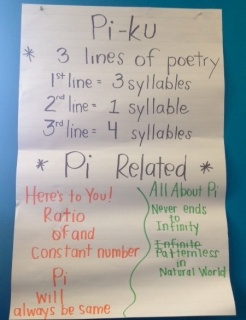 Pi-ku
* 3 lines of poetry
1st line = 3 syllables
2nd line = 1 syllable
3rd line = 4 syllables
* Pi Related *
Here's to You!
Ratio
of and
Constant number
Pi
will
always be same
All About Pi
Never ends
to
Infinity
Infinite
Patternless
in
Natural World